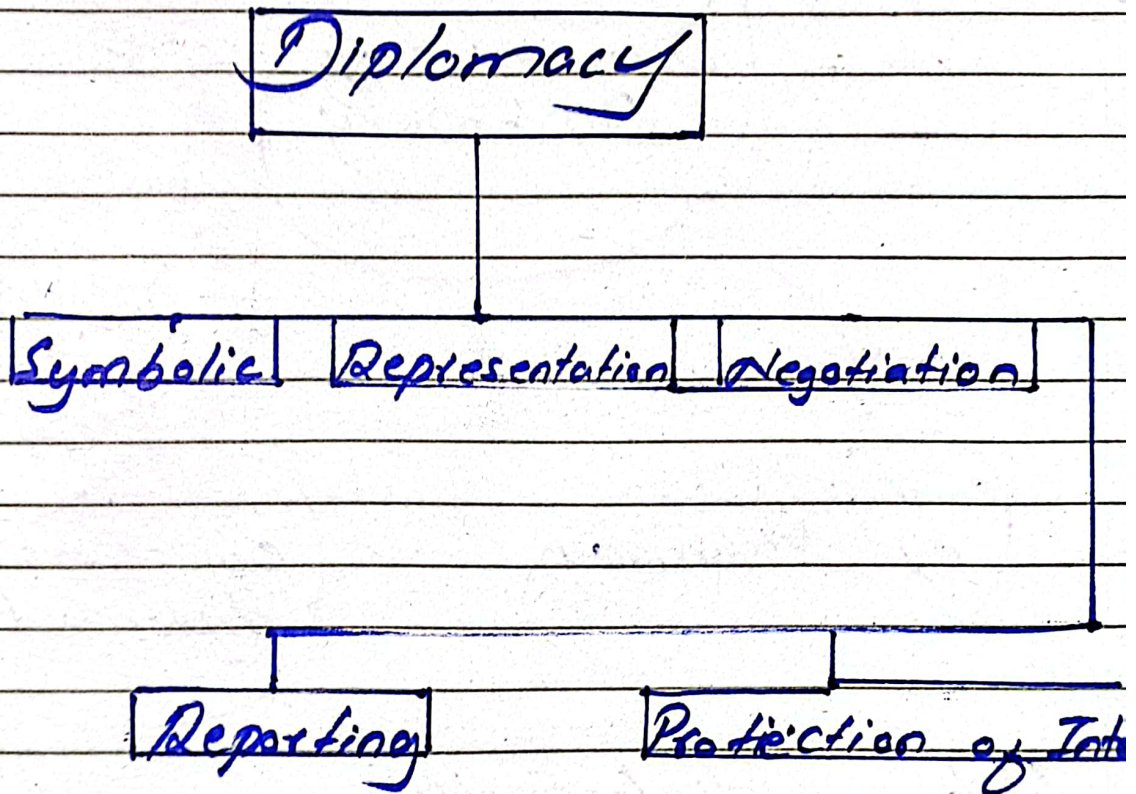 Diplomacy
Symbolic Representation Negotiation
Reporting Protection of Inte